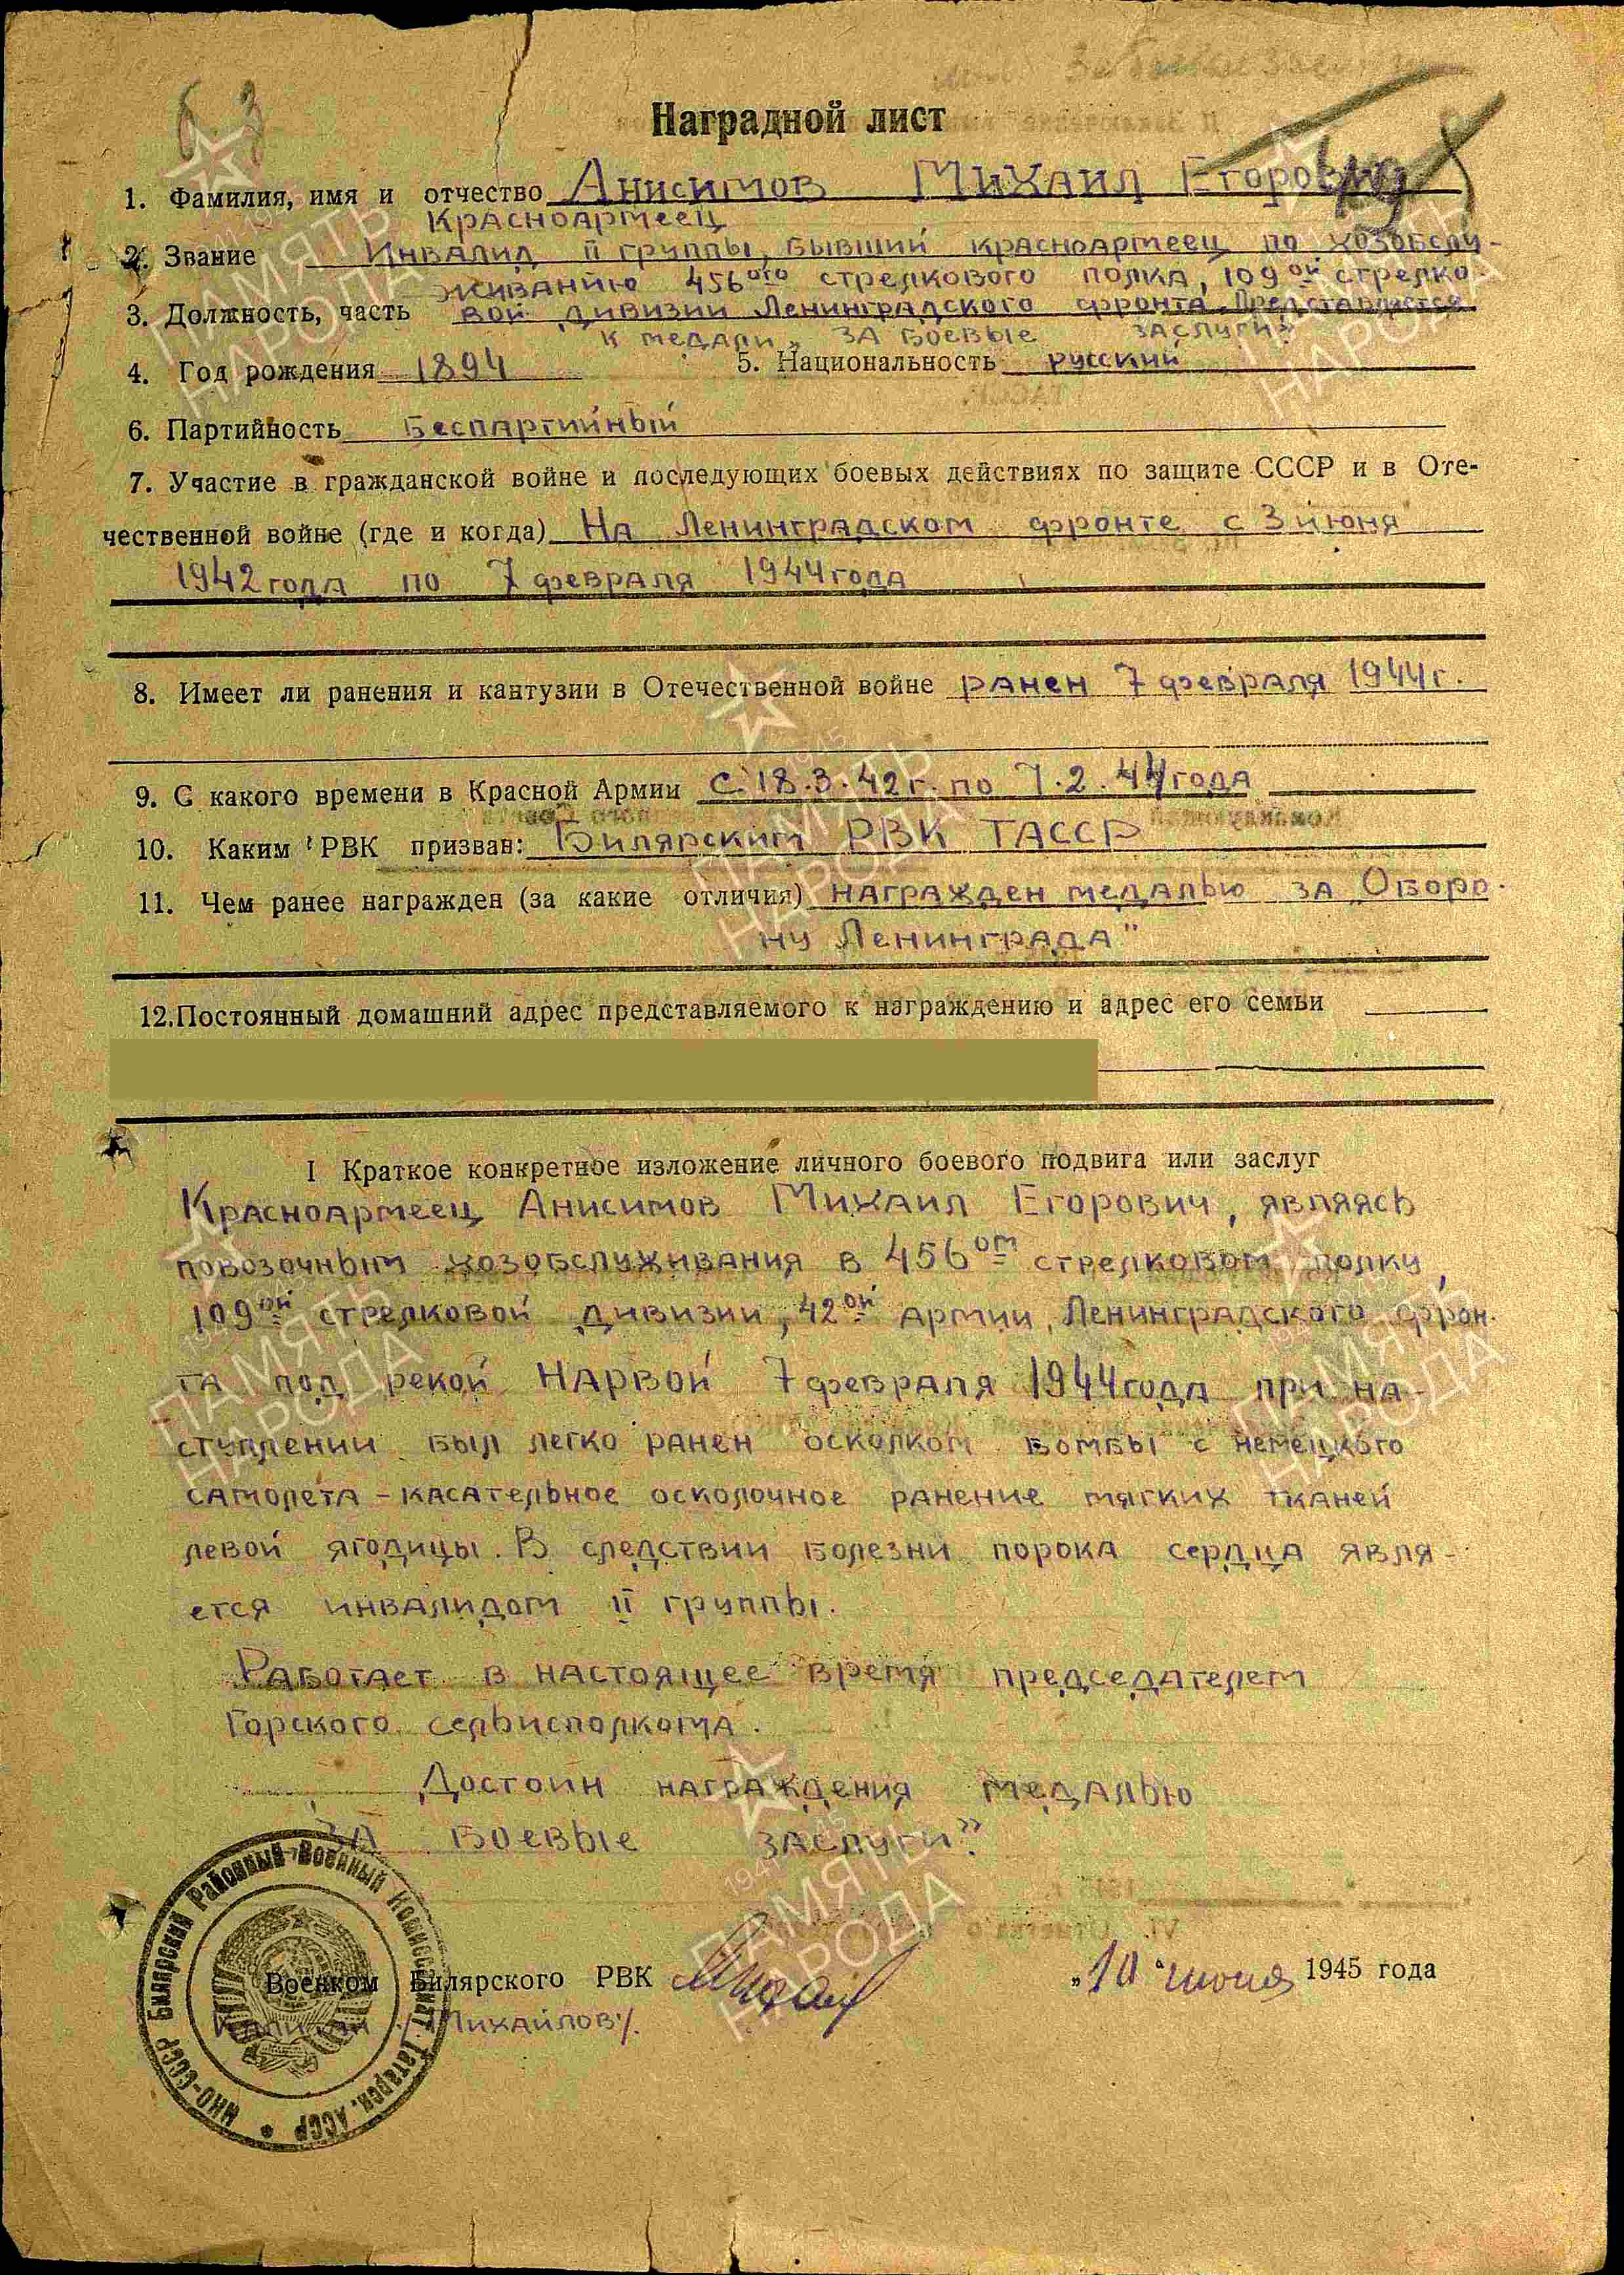 Наградной лист
1. Фамилия, имя и отчество Анисимов Михаил Егорович
Красноармеец
2. Звание Инвалид II группы, бывший красноармеец по хозобслу-
живанию 456ого стрелкового полка, 109ой стрелко-
3. Должность, часть вой дивизии Ленинградского фронта. Представляется
к медали „За боевые заслуги”
4. Год рождения 1894 5. Национальность русский
6. Партийность Беспартийный
7. Участие в гражданской войне и последующих боевых действиях по защите СССР и в Оте-
чественной войне (где и когда) На Ленинградском фронте с 3 июня
1942 года по 7 февраля 1944 года
8. Имеет ли ранения и кантузии в Отечественной войне ранен 7 февраля 1944 г.
9. С какого времени в Красной Армии с 18.3.42 г. по 7.2.44 года
10. Каким РВК призван: Билярским РВК ТАССР
11. Чем ранее награжден (за какие отличия) награжден медалью за Оборо-
ну Ленинграда"
12. Постоянный домашний адрес представляемого к награждению и адрес его семьи
I Краткое конкретное изложение личного боевого подвига или заслуг
Красноармеец Анисимов Михаил Егорович, являясь
повозочным хозобслуживания в 456ом стрелковом полку,
109ой стрелковой дивизии, 42ой Армии, Ленинградского фрон-
та под рекой Нарвой 7 февраля 1944 года при на-
ступлении был легко ранен осколком бомбы с немецкого
самолета – касательное осколочное ранение мягких тканей
левой ягодицы. В следствии болезни порока сердца явля-
ется инвалидом II группы.
Работает в настоящее время председателем
Горского сельисполкома.
Достоин награждения медалью
За боевые заслуги”.
Военком Билярского РВК „10“ июня 1945 года
Капитан /Михайлов/.
НКО-СССР Билярский Районный Военный Комиссариат Татарск. АССР
ПАМЯТЬ НАРОДА
1941 1945